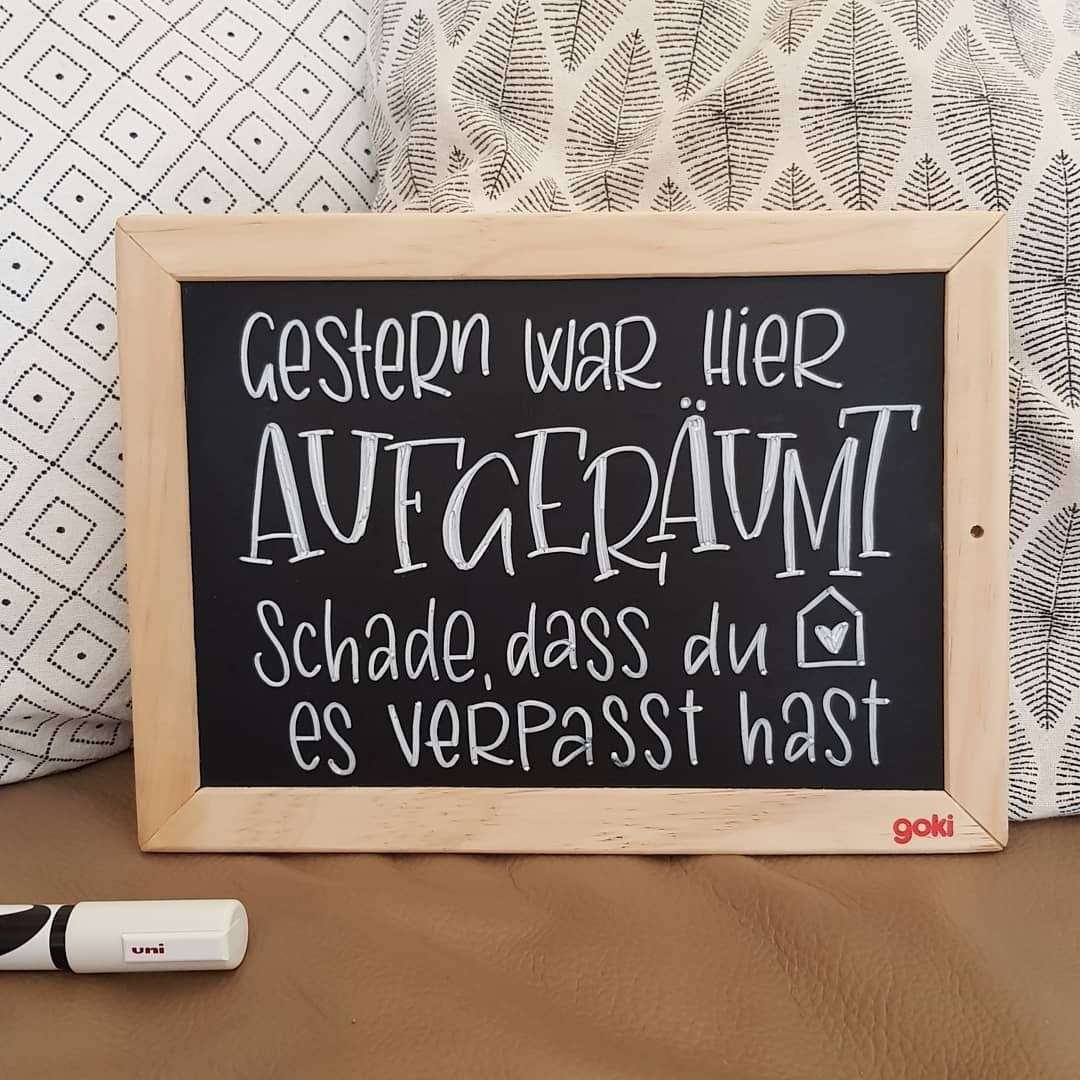 Gestern war hier
AUFGERÄUMT
Schade, dass du
es verpasst hast
goki
uni